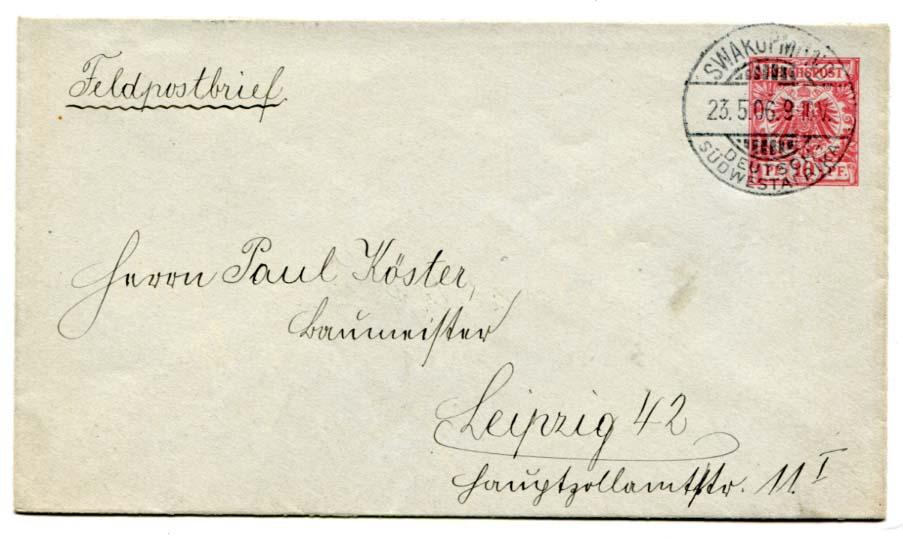 Feldpostbrief
SWAKOPMUND
23.5.06.9-11V.
DEUTSCH-
SÜDWESTAFRIKA
REICHSPOST
PF 10 PF.
Herrn Paul Köster,
Baumeister
Leipzig 42
Hauptzollamtstr. 11. I